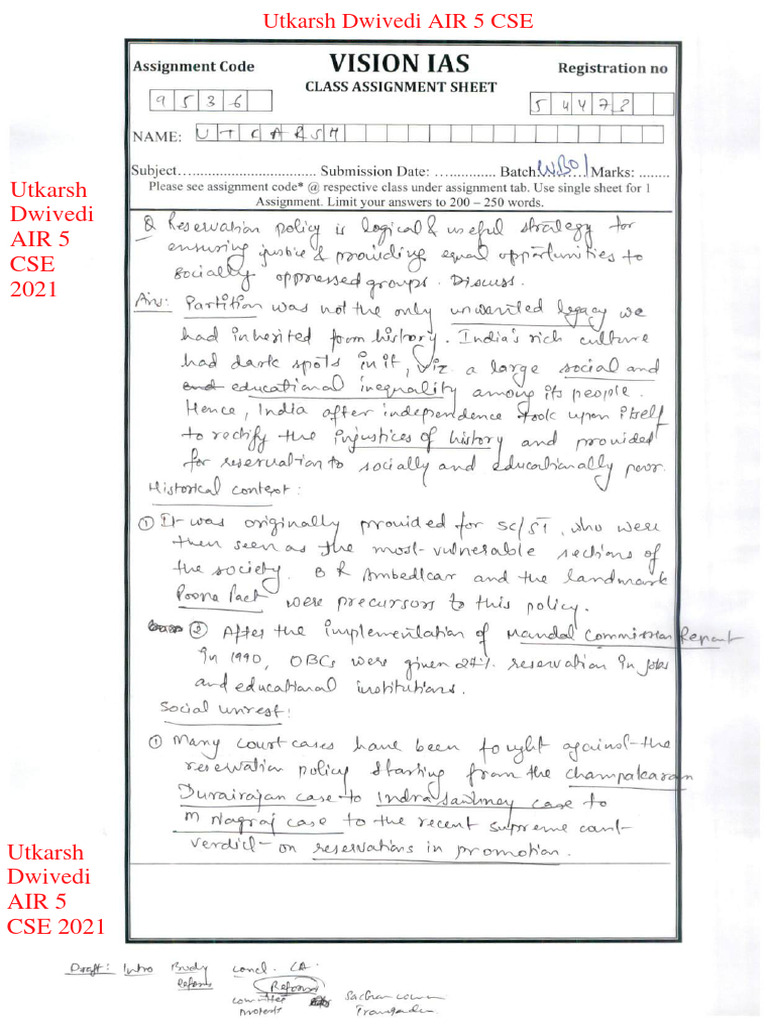 Utkarsh Dwivedi AIR 5 CSE
Assignment Code VISION IAS Registration no
CLASS ASSIGNMENT SHEET
9 5 3 6 5 4 4 7 8
NAME: U T K A R S H
Subject.............................. Submission Date: ............... Batch WB01 Marks: ........
Please see assignment code* @ respective class under assignment tab. Use single sheet for 1
Assignment. Limit your answers to 200 – 250 words.
Utkarsh
Dwivedi
AIR 5
CSE
2021
Q Reservation policy is logical & useful strategy for
ensuring justice & providing equal opportunities to
socially oppressed groups. Discuss.
Ans: Partition was not the only unwanted legacy we
had inherited from history. India's rich culture
had dark spots in it, viz a large social and
and educational inequality among its people.
Hence, India after independence took upon itself
to rectify the injustices of history and provided
for reservation to socially and educationally poor.
Historical context:
① It was originally provided for SC/ST, who were
then seen as the most vulnerable sections of
the society. B R Ambedkar and the landmark
Poona Pact were precursors to this policy.
② After the implementation of Mandal Commission Report
in 1990, OBCs were given 27% reservation in jobs
and educational institutions.
Social unrest:
① Many court cases have been fought against the
reservation policy starting from the Champakaran
Durairajan case to Indra Sawhney case to
M Nagraj case to the recent supreme court
verdict on reservations in promotion.
Utkarsh
Dwivedi
AIR 5
CSE 2021
Draft: Intro Body concl. CA
Reforms
committee
Protests